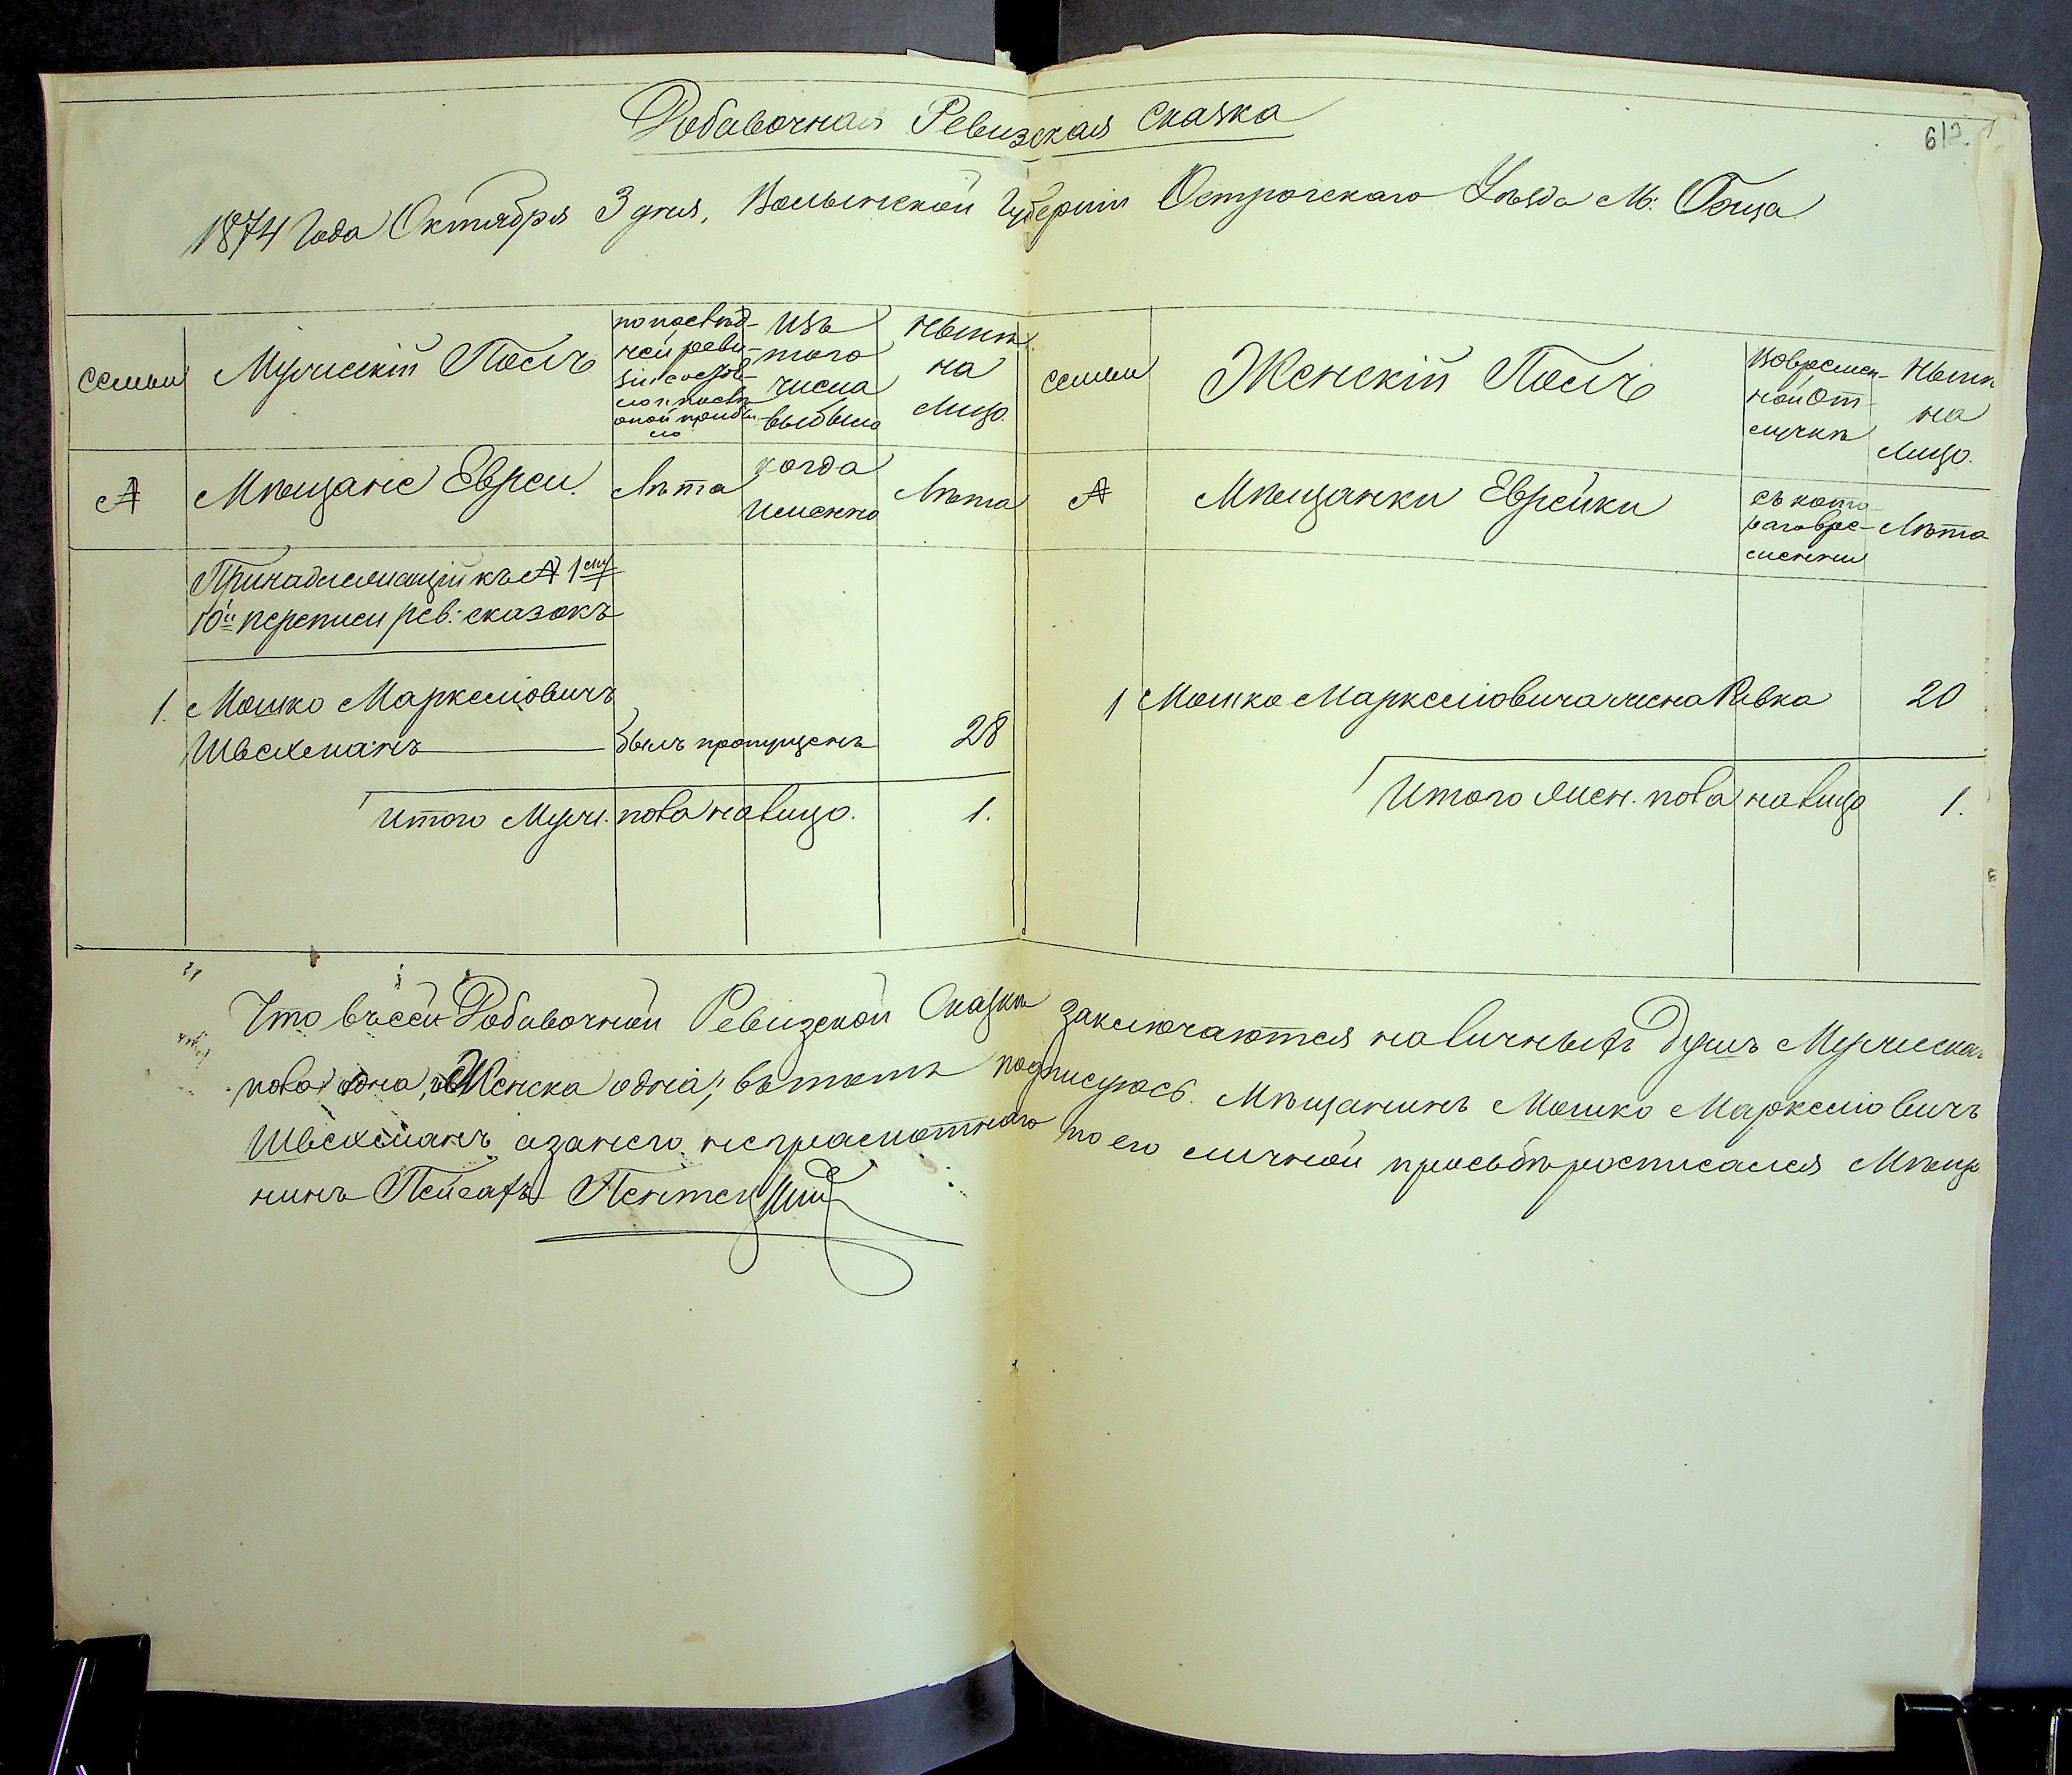 Добавочная Ревизская Сказка
612.
1874 Года Октября 3 дня, Волынской Губерніи Острогскаго Уѣзда М: Гоща
семьи
Мужескій Полъ
по послѣд-
ней реви-
зіи состоя-
ло и послѣ
оной прибы-
ло
изъ
того
числа
выбыло
нынѣ
на
лицо.
семьи
Женскій Полъ
Во времен-
ной от-
лучкѣ
Нынѣ
на
лицо.
№
Мѣщане Евреи.
Лѣта
когда
именно
Лѣта
№
Мѣщанки Еврейки
съ кото-
раго вре-
мени
Лѣта
Принадлежащій къ № 1му
10й переписи рев: сказокъ
1. Мошко Маркелiовичъ
Швехманъ былъ пропущенъ 28
1 Мошка Маркелiовича жена Ривка 20
Итого Муж. пола на лицо. 1.
Итого жен. пола на лицо 1.
Что въ сей Добавочной Ревизской Сказкѣ заключаются наличныхъ Душъ Мужеска
пола одна, и Женска одна; въ томъ подписуюсь. Мѣщанинъ Мошко Маркелiовичъ
Швехманъ а за него неграмотнаго по его личной просьбѣ росписался Мѣща
нинъ Пейсахъ